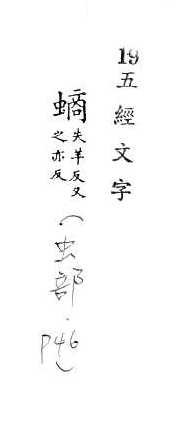 19 五經文字
螪 失羊反又
之亦反
(虫部.
P46)